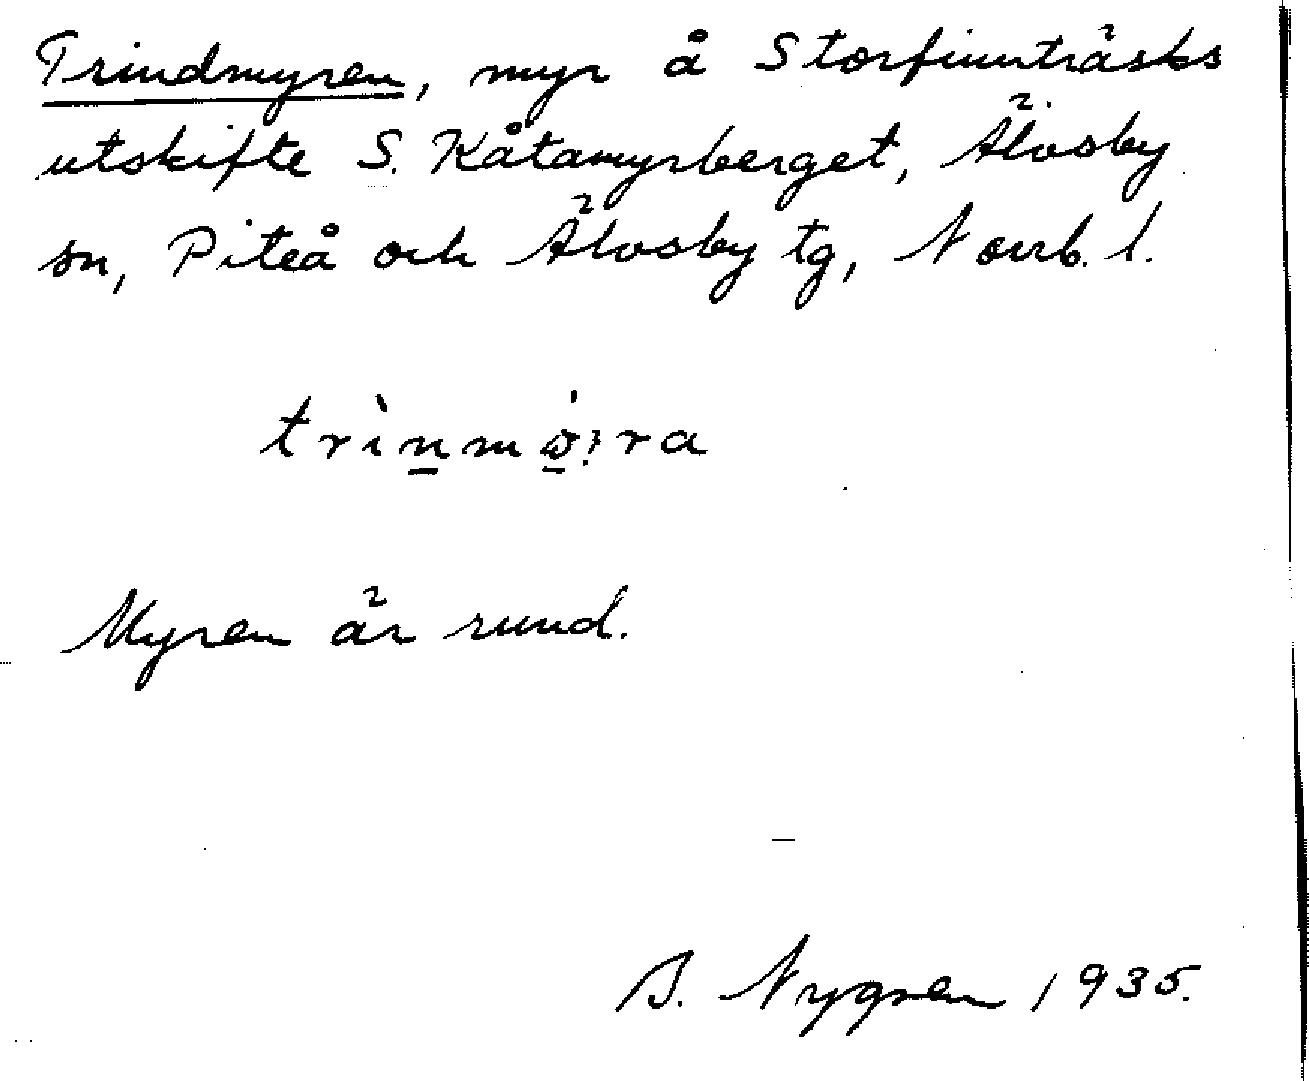 Trindmyren, myr å Storfinnträsks
utskifte S. Kåtamyrberget, Älvsby
sn, Piteå och Älvsby tg, Norrb. l.
trìn̲mǿ̲ra
Myren är rund.
B. Nygren 1935.